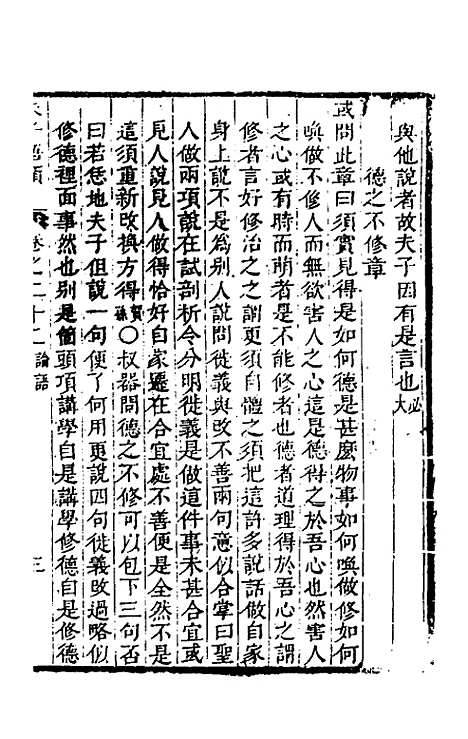 與他說者故夫子因有是言也必大
德之不修章
或問此章曰須實見得是如何德是甚麼物事如何喚做修如何
喚做不修人而無欲害人之心這是德得之於吾心也然害人
之心或有時而萌者是不能修者也德者道理得於吾心之謂
修者言好修治之之謂更須自體之須把這許多說話做自家
身上說不是為別人說問徙義與改不善兩句意似合掌曰聖
人做兩項說在試剖析令分明徙義是做這件事未甚合宜或
見人說見人做得恰好自家遷在合宜處不善便是全然不是
這須重新改換方得賀孫○叔器問德之不修可以包下三句否
曰若恁地夫子但說一句便了何用更說四句徙義改過略似
修德裡面事然也別是箇頭項講學自是講學修德自是修德
卷之三十二 論語 三